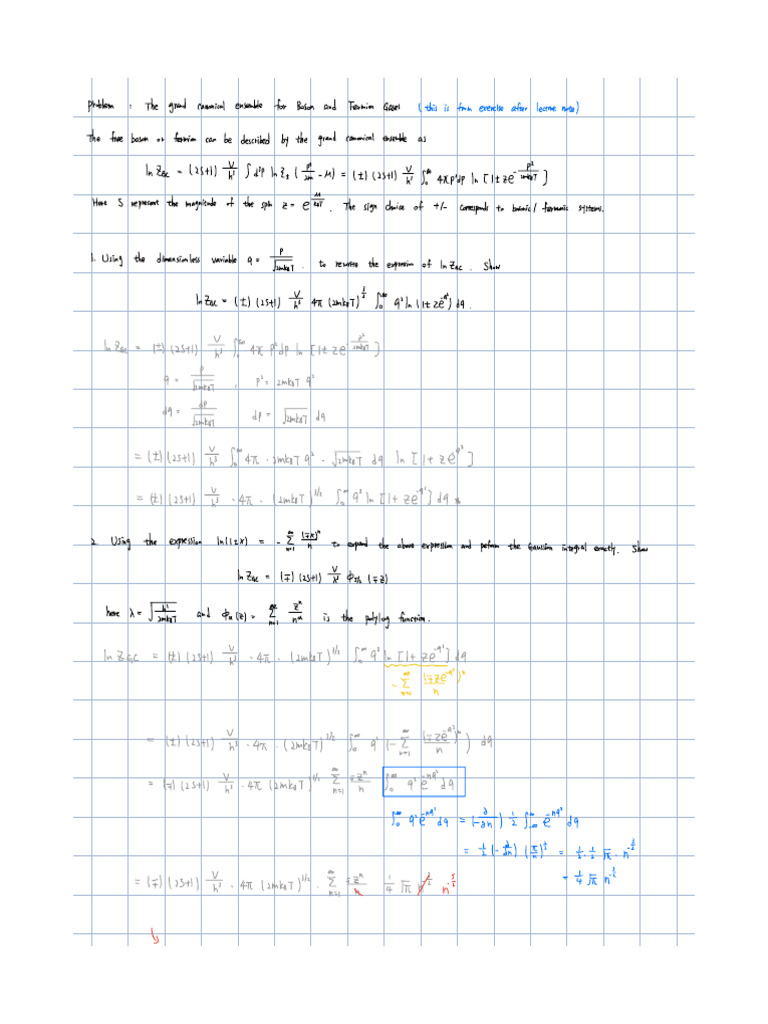 Problem : The grand canonical ensemble for Boson and Fermion Gases (this is from exercise after lecture notes)
The free boson or fermion can be described by the grand canonical ensemble as
ln Z_GC = (2S+1) V/h³ ∫ d³p ln Z_± (p²/2m - μ) = (±) (2S+1) V/h³ ∫₀^∞ 4πp²dp ln [1 ± z e^(-p²/2mk_BT)]
Here S represent the magnitude of the spin z = e^(μ/k_BT). The sign choice of +/- corresponds to bosonic/ fermionic systems.
1. Using the dimensionless variable q = p/√(2mk_BT). to rewrite the expression of ln Z_GC. Show
ln Z_GC = (±) (2S+1) V/h³ 4π (2mk_BT)^(3/2) ∫₀^∞ q² ln (1 ± z e^(-q²)) dq.
ln Z_GC = (±) (2S+1) V/h³ ∫₀^∞ 4π p²dp ln [1 ± z e^(-p²/2mk_BT)]
q = p/√(2mk_BT) , p² = 2mk_BT q²
dq = dp/√(2mk_BT) dp = √(2mk_BT) dq
= (±) (2S+1) V/h³ ∫₀^∞ 4π · 2mk_BT q² · √(2mk_BT) dq ln [1 + z e^(-q²)]
= (±) (2S+1) V/h³ · 4π · (2mk_BT)^(3/2) ∫₀^∞ q² ln [1 + z e^(-q²)] dq
2. Using the expression ln(1±x) = - Σ_(n=1)^∞ (∓x)^n/n to expand the above expression and peform the Gaussian integral exactly. Show
ln Z_GC = (∓) (2S+1) V/λ³ Φ_(5/2) (∓z)
here λ = √(h²/2mk_BT) and Φ_α(z) = Σ_(n=1)^∞ z^n/n^α is the polylog function.
ln Z_GC = (±) (2S+1) V/h³ · 4π · (2mk_BT)^(3/2) ∫₀^∞ q² ln [1 + z e^(-q²)] dq
- Σ_(n=1)^∞ (∓z e^(-q²))^n/n
= (±) (2S+1) V/h³ · 4π · (2mk_BT)^(3/2) ∫₀^∞ q² (- Σ_(n=1)^∞ (∓z e^(-q²))^n/n) dq
= (∓) (2S+1) V/h³ · 4π (2mk_BT)^(3/2) Σ_(n=1)^∞ ∓z^n/n ∫₀^∞ q² e^(-nq²) dq
∫₀^∞ q² e^(-nq²) dq = (-∂/∂n) 1/2 ∫_(-∞)^∞ e^(-nq²) dq
= 1/2 (-∂/∂n) (π/n)^(1/2) = 1/2 · 1/2 √π · n^(-3/2)
= 1/4 √π n^(-3/2)
= (∓) (2S+1) V/h³ · 4π (2mk_BT)^(3/2) · Σ_(n=1)^∞ ∓z^n/n 1/4 √π n^(-5/2)